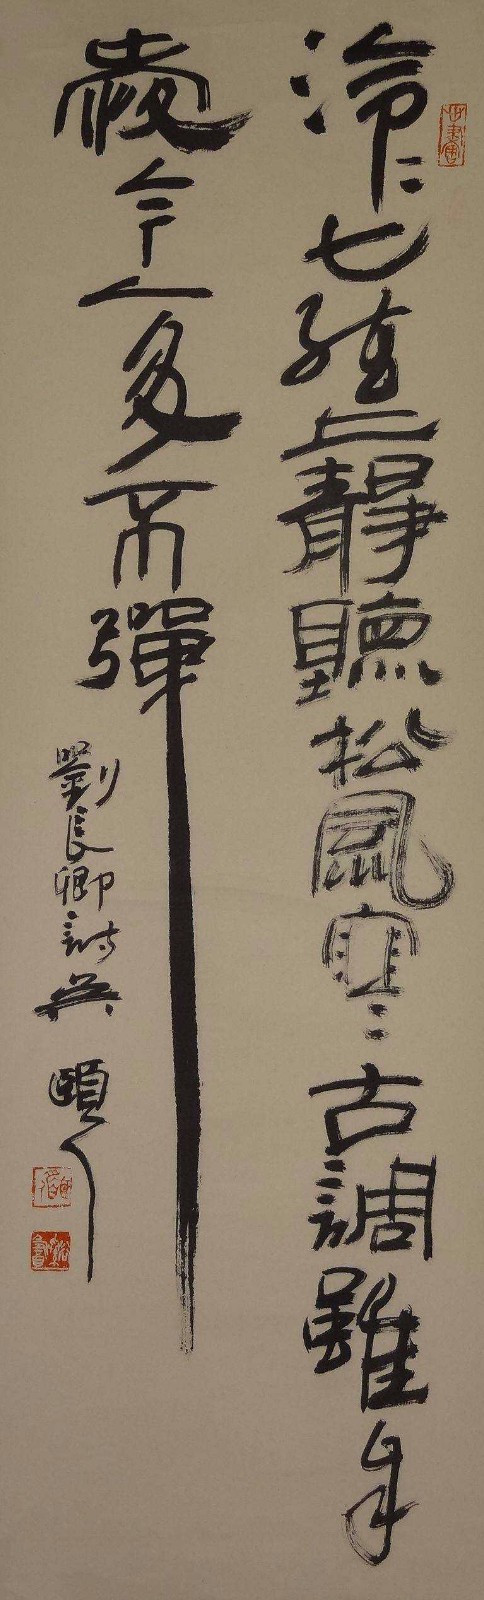 泠〻七絃上靜聽松風寒古調雖自
愛今人多不彈
劉長卿詩吳頤人